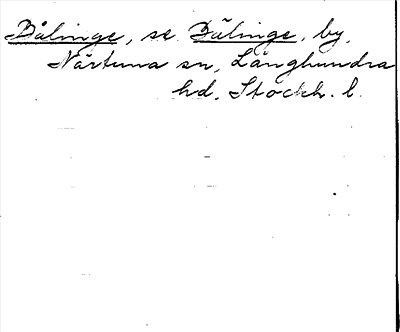 Bålinge, se Bälinge, by,
Närtuna sn, Långhundra
hd, Stockh. l.